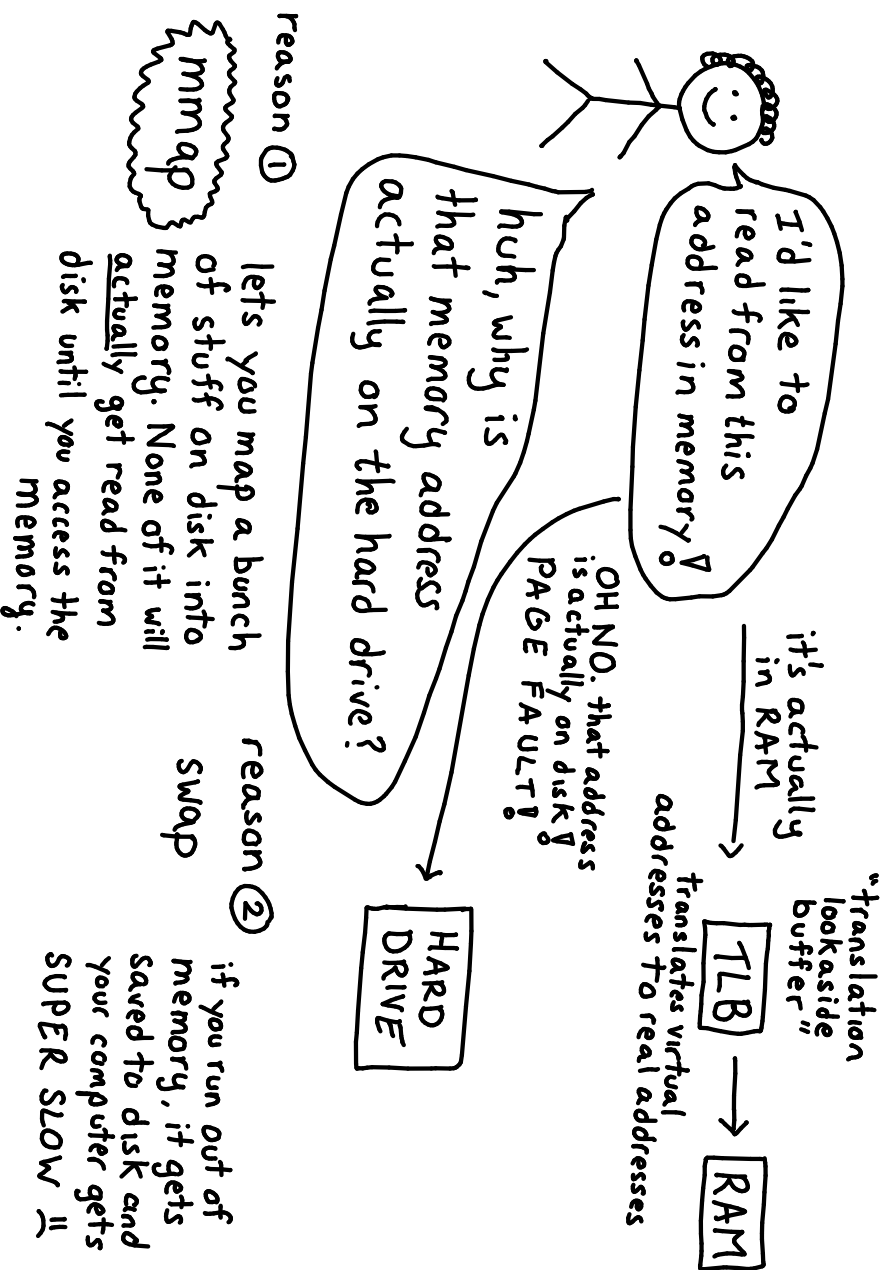 I'd like to
read from this
address in memory!
it's actually
in RAM
"translation
lookaside
buffer"
TLB
RAM
translates virtual
addresses to real addresses
OH NO. that address
is actually on disk!
PAGE FAULT!
HARD
DRIVE
huh, why is
that memory address
actually on the hard drive?
reason ①
mmap
lets you map a bunch
of stuff on disk into
memory. None of it will
actually get read from
disk until you access the
memory.
reason ②
swap
if you run out of
memory, it gets
saved to disk and
your computer gets
SUPER SLOW =(